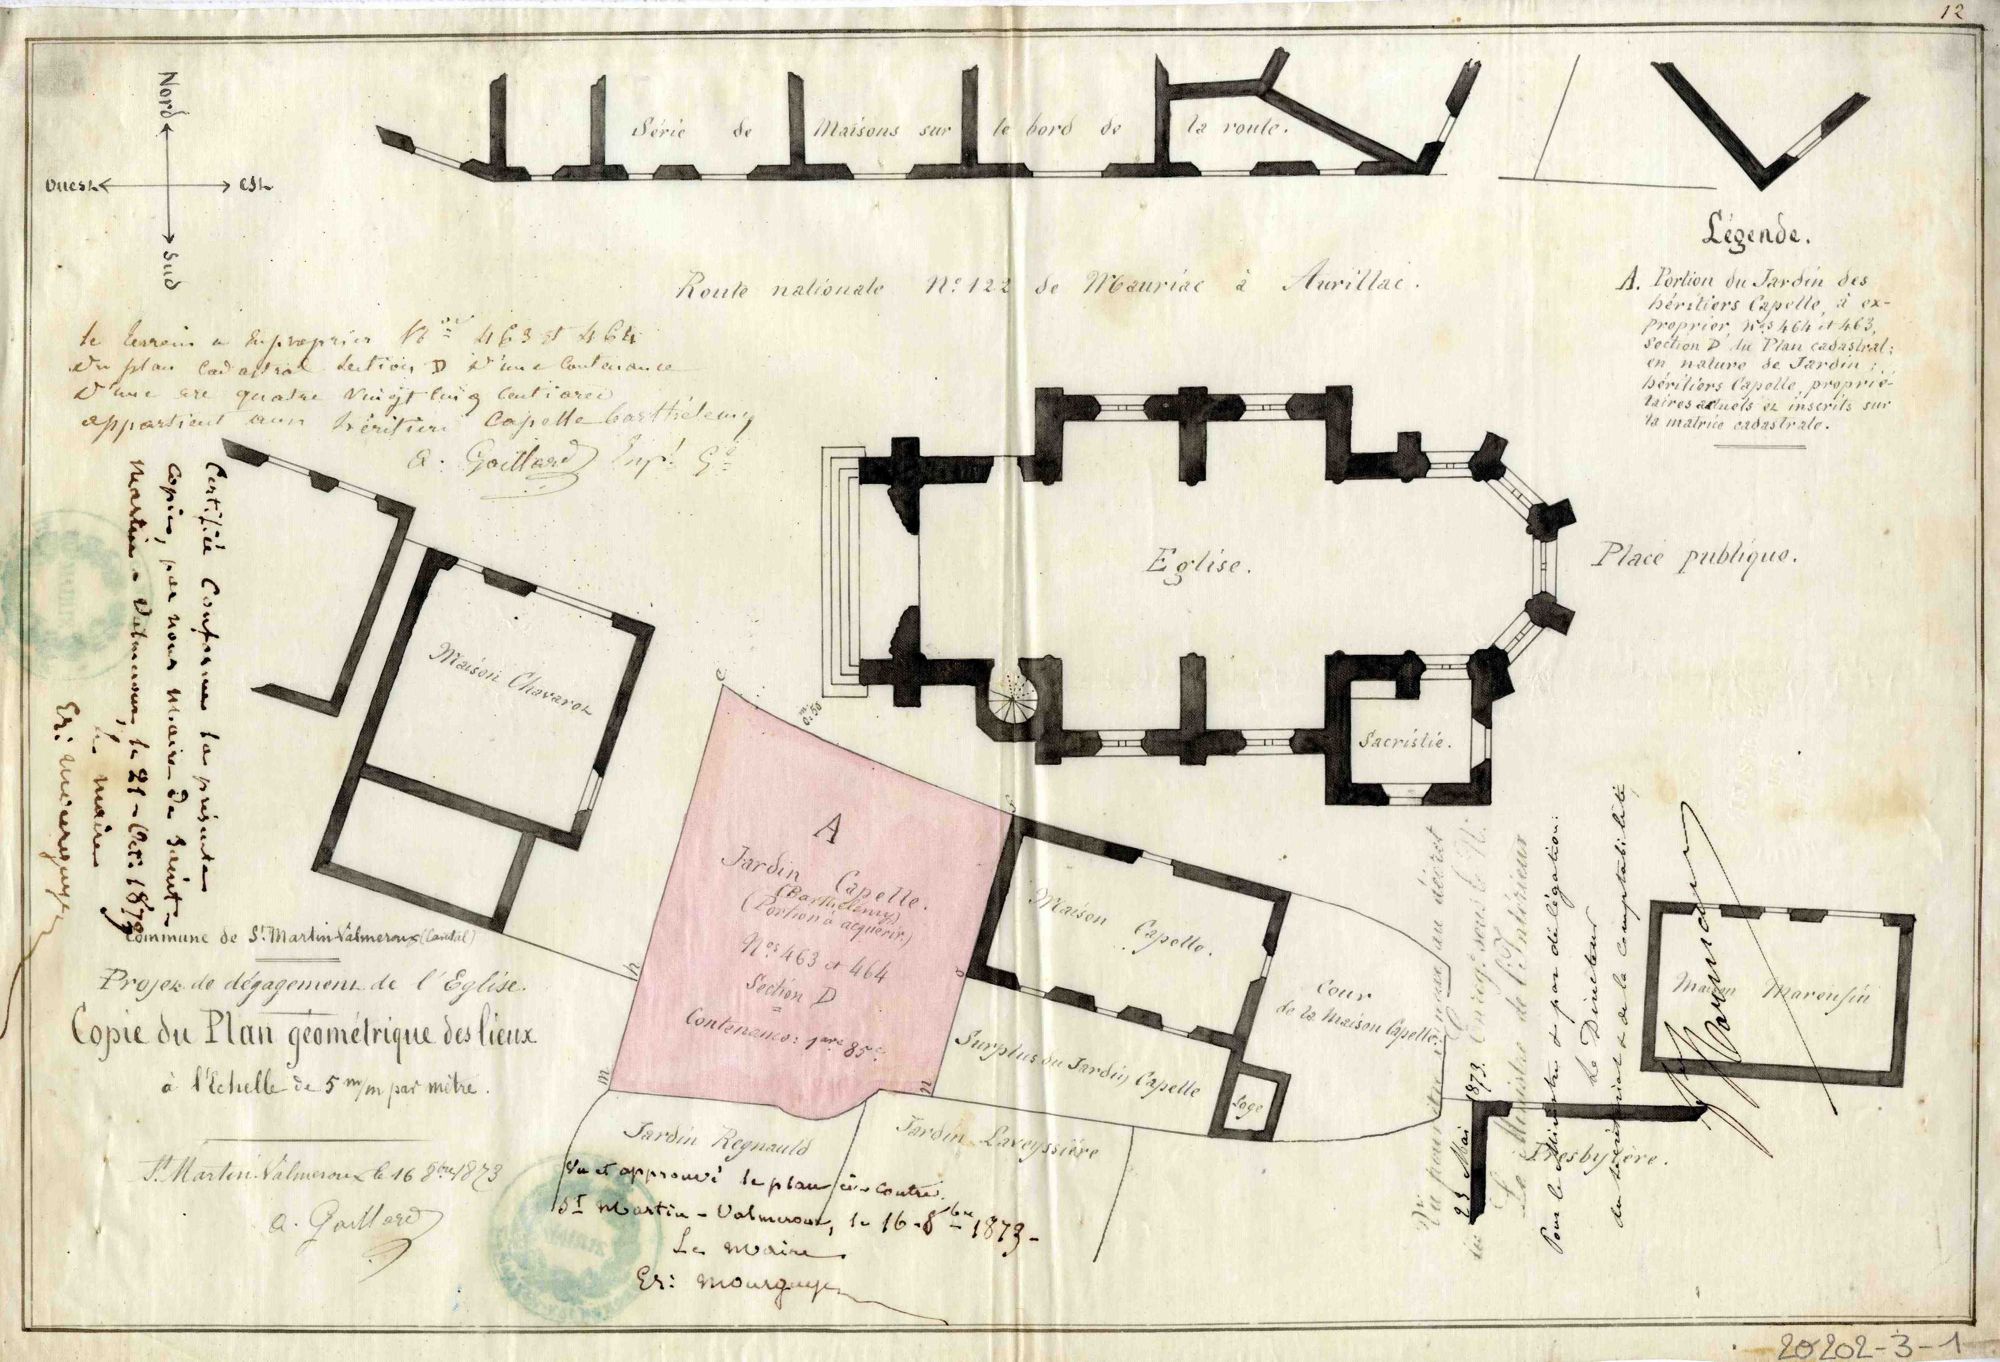 12
Nord
Ouest
Est
Sud
Série de Maisons sur le bord de la route.
Route nationale N.º 122 de Mauriac à Aurillac.
Légende.
A. Portion du Jardin des
héritiers Capelle, à ex-
proprier, Nºs 464 et 463,
Section D du Plan cadastral;
en nature de Jardin;
héritiers Capelle, proprié-
taires actuels et inscrits sur
la matrice cadastrale.
le terrain a Exproprier Nos 463 et 464
du plan cadastral Section D d'une Contenance
d'une are quatre vingt cinq Centiares
appartient aux héritiers Capelle Barthélemy
a. Gaillard
Certifié Conforme la présente
Copie, par nous Maire de Saint-
Martin-Valmeroux, le 21 - Oct. 1873
le maire
Maison Chavarot
Eglise.
Place publique.
Sacristie.
c
m. 0.50
A
Jardin Capelle.
(Barthélemy)
(Portion à acquérir.)
Nos 463 et 464
Section D
Contenance: 1 are 85 c.
h
m
n
o
Maison Capelle.
Cour
de la Maison Capelle.
Surplus du Jardin Capelle
Loge
Maison Marousin
Presbytère.
Jardin Regnauld
Jardin Laveyssière
Commune de St. Martin-Valmeroux (Cantal)
Projet de dégagement de l'Eglise.
Copie du Plan géométrique des lieux
à l'Echelle de 5 m/m par mètre.
St. Martin-Valmeroux le 16 8bre 1873
a. Gaillard
Vu et approuvé le plan ci-contre.
St Martin-Valmeroux, le 16-8bre 1873-
Le Maire
23 Mai 1873.
Le Ministre de l'Intérieur
Pour le Ministre et par délégation:
Le Directeur
du et de la comptabilité,
20202-3-1